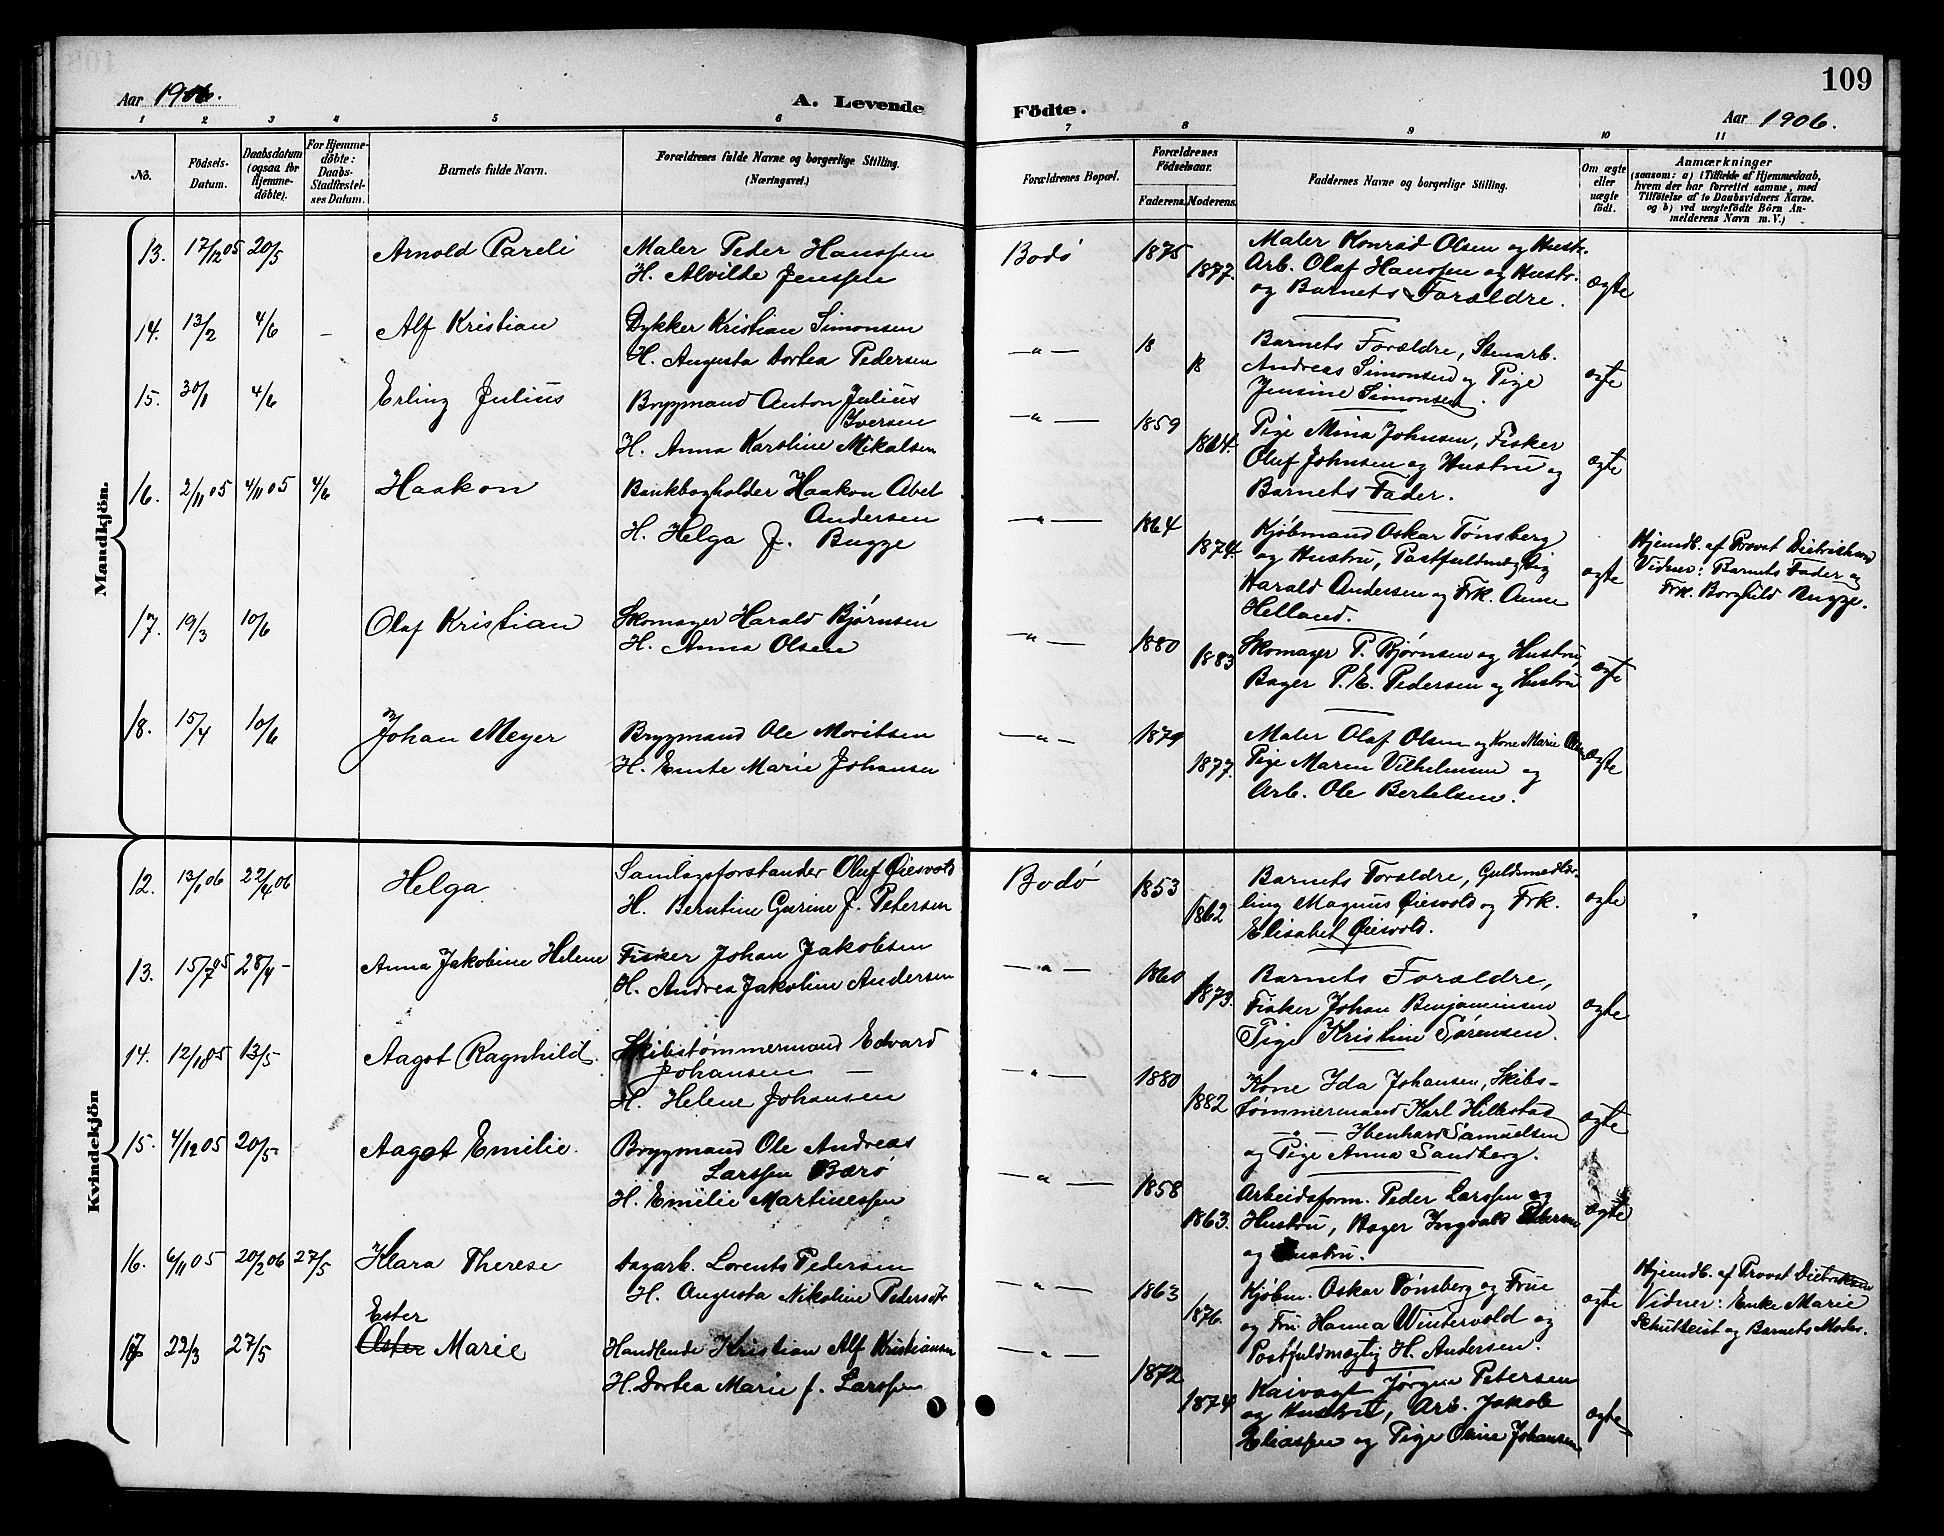 Aar 1906.
A. Levende
1 2 3 4 5 6
No.
Födsels-Datum.
Daabsdatum (ogsaa for Hjemme-döbte).
For Hjemme-döbte: Daabs-Stadfæstelses Datum.
Barnets fulde Navn.
Forældrenes fulde Navne og borgerlige Stilling.
(Næringsvei.)
Mandkjön.
13. 17/12 05 20/5 Arnold Pareli Maler Peder Hanssen
H. Alvilde Jenssen
14. 13/2 4/6 - Alf Kristian Dykker Kristian Simonsen
H. Augusta Dortea Pedersen
15. 30/1 4/6 Erling Julius Bryggmand Anton Julius
Iversen
H. Anna Karoline Mikalsen
16. 2/11 05 4/11 05 4/6 Haakon Bankbogholder Haakon Abel
Andersen
H. Helga J. Bugge
17. 19/3 10/6 Olaf Kristian Skomager Harald Bjørnsen
H. Anna Olsen
18. 15/4 10/6 Johan Meyer Bryggmand Ole Moritsen
H. Emte Marie Johansen
Kvindekjön
12. 13/1 06 22/4 06 Helga Samlagsforstander Oluf Øiesvold
H. Berntine Gurine J. Petersen
13. 15/7 05 28/4 - Anna Jakobine Helene Fisker Johan Jakobsen
H. Andrea Jakobine Andersen
14. 12/1 05 13/5 Aagot Ragnhild. Skibstømmermand Edvard
Johansen —
H. Helene Johansen
15. 4/12 05 20/5- Aagot Emilie. Bryggmand Ole Andreas
Larssen Bærø
H. Emilie Martinessen
16. 6/11 05 20/2 06 27/5 Klara Therese Dagarb. Lorents Pedersen
H. Augusta Nikoline Peders.dtr
Ester
17 22/3 27/5 Øster Marie Handlende Kristian Alf Kristiansen
H. Dortea Marie f. Larssen
109
Födte.
Aar 1906.
7 8 9 10 11
Forældrenes Bopæl.
Forældrenes Födselsaar.
Faderens. Moderens.
Faddernes Navne og borgerlige Stilling.
Om ægte eller uægte födt.
Anmærkninger
(saasom: a) i Tilfælde af Hjemmedaab,
hvem der har forrettet samme, med
Tilföielse af to Daabsvidners Navne.
og b) ved uægtefödte Börn An-
melderens Navn m. V.)
Bodø 1875 1877. Maler Konrad Olsen og Hustr.
Arb. Olaf Hanssen og Hustr.
og Barnets Forældre. ægte
—"— 18 18 Barnets Forældre, Stenarb.
Andreas Simonsen og Pige
Jensine Simonsen. ægte
—"— 1859 1864. Pige Mina Johnsen, Fisker
Oluf Johnsen og Hustru og
Barnets Fader. ægte
—"— 1864 1874. Kjøbmand Oskar Tønsberg
og Hustru, Postfuldmægtig
Harald Andersen og Frk. Anne
Helland. ægte
Hjemdb. af Provst Dietrichson
Vidner: Barnets Fader og
Frk. Borghild Bugge.
—"— 1880 1883 Skomager P. Bjørnsen og Hustru,
Bager P. E. Pedersen og Hustru ægte
—"— 1879 1877. Maler Olaf Olsen og Kone Marie Olsen
Pige Maren Vilhelmsen og
Arb. Ole Bertelsen. ægte
Bodø 1853 1862 Barnets Forældre, Guldsmedlær-
ling Magnus Øiesvold og Frk.
Elisabet Øiesvold. ægte
—"— 1860 1873. Barnets Forældre,
Fisker Johan Benjaminsen
Pige Kristine Sørensen. ægte
—"— 1880 1882 Kone Ida Johansen, Skibs-
tømmermand Karl Hillestad
—"— Ebenhard Samuelsen
og Pige Anna Sandberg. ægte
—"— 1858 1863. Arbeidsform. Peder Larssen og
Hustru, Bager Ingvald Pedersen
og Hustru. ægte
—"— 1863 1876. Kjøbm. Oskar Tønsberg og Frue
og Fru Hanna Wintervold og
Postfuldmægtig H. Andersen. ægte
Hjemdb. af Provst Dietrichson
Vidner: Enke Marie
Schutteist og Barnets Moder.
—"— 1872 1874 Kaivagt Jørgen Petersen
og Hustru, Arb. Jakob
Eliassen og Pige Oline Johansen ægte